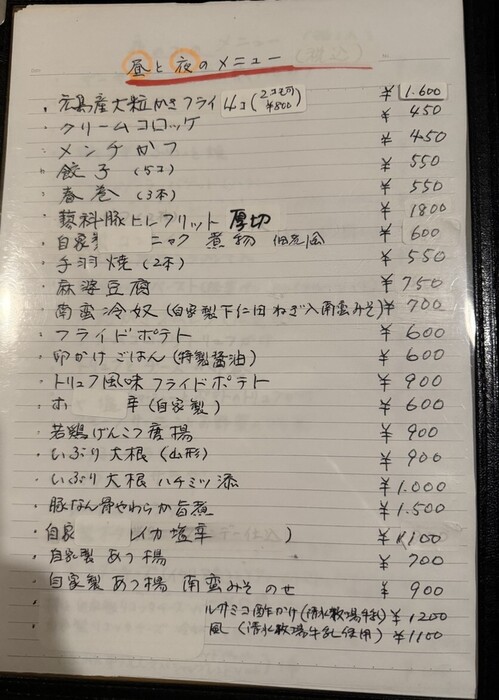 昼と夜のメニュー
・広島産大粒かきフライ 4コ(2コ ¥800) ¥1.600
・クリームコロッケ ¥450
・メンチかつ ¥450
・餃子 (5コ) ¥550
・春巻 (3本) ¥550
・蓼科豚ヒレフリット 厚切 ¥1800
・自家 ニャク 煮物 ¥600
・手羽焼 (2本) ¥550
・麻婆豆腐 ¥750
・南蛮冷奴 (自家製下仁田ねぎ入南蛮みそ) ¥700
・フライドポテト ¥600
・卵かけごはん (特製醤油) ¥600
・トリュフ風味フライドポテト ¥900
・ホ 辛 (自家製) ¥600
・若鶏げんこつ唐揚 ¥900
・いぶり大根 (山形) ¥900
・いぶり大根 ハチミツ添 ¥1.000
・豚なん骨やわらか旨煮 ¥1.500
・自家 イカ塩辛 ) ¥1100
・自家製あつ揚 ¥700
・自家製あつ揚 南蛮みそのせ ¥900
ルサミコ酢かけ (清水牧場牛乳) ¥1200
風 (清水牧場牛乳使用) ¥1100